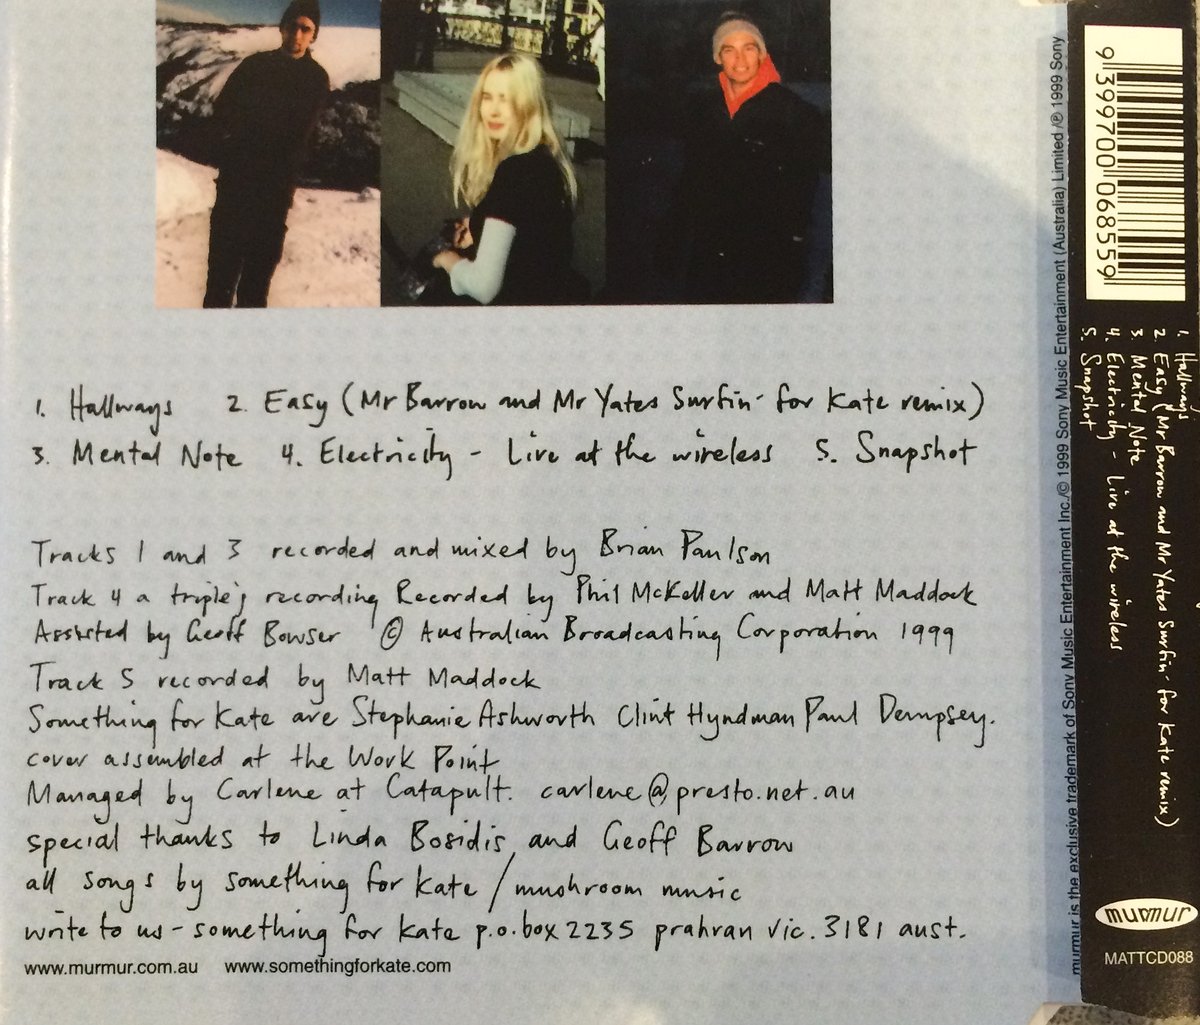 1. Hallways 2. Easy (Mr Barrow and Mr Yates Surfin' for Kate remix)
3. Mental Note 4. Electricity - Live at the wireless 5. Snapshot
Tracks 1 and 3 recorded and mixed by Brian Paulson
Track 4 a triple j recording Recorded by Phil McKeller and Matt Maddock
Assisted by Geoff Bowser © Australian Broadcasting Corporation 1999
Track 5 recorded by Matt Maddock
Something for Kate are Stephanie Ashworth Clint Hyndman Paul Dempsey.
cover assembled at the Work Point
Managed by Carlene at Catapult. carlene@presto.net.au
special thanks to Linda Bosidis, and Geoff Barrow
all songs by something for kate / mushroom music
write to us - something for kate p.o.box 2235 prahran vic. 3181 aust.
www.murmur.com.au www.somethingforkate.com
murmur is the exclusive trademark of Sony Music Entertainment Inc./© 1999 Sony Music Entertainment (Australia) Limited /℗ 1999 Sony
9 399700 068559
1. Hallways
2. Easy (Mr Barrow and Mr Yates Surfin' for Kate remix)
3. Mental Note
4. Electricity - Live at the wireless
5. Snapshot
murmur
MATTCD088